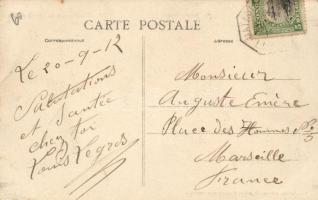 CARTE POSTALE
Correspondance
Adresse
Le 20-9-12
Salutations
et Santée
chez toi
Louis Legros
Monsieur
Auguste
Place des Hommes
Marseille
France